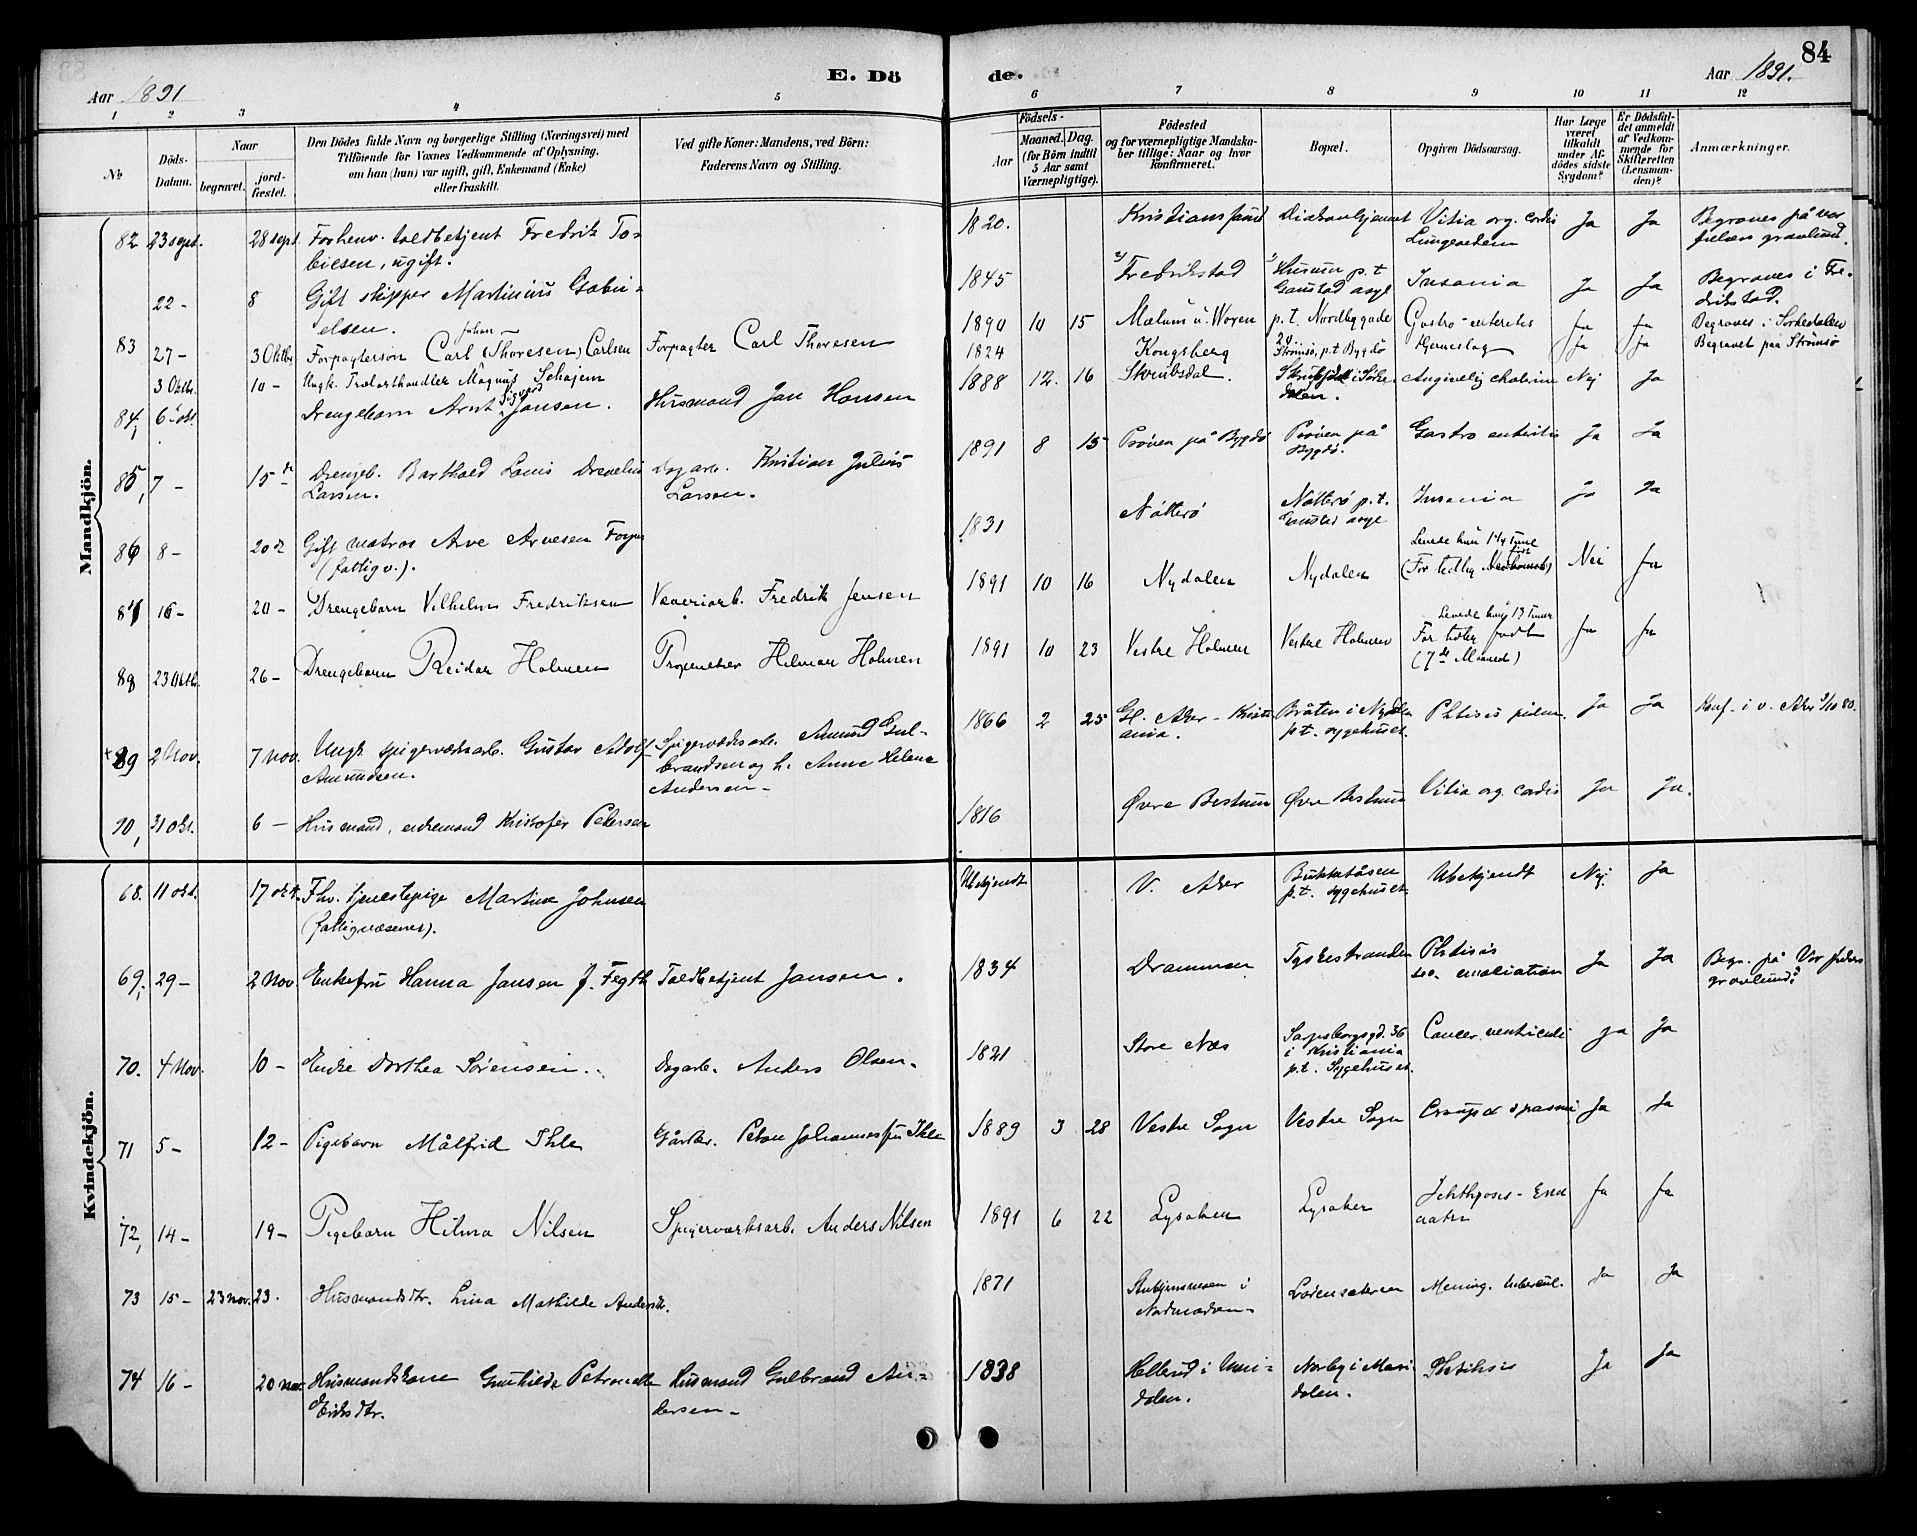 84
Aar 1891
E. Dö
de.
Aar 1891.
1 2 3 4 5 6 7 8 9 10 11 12
№
Döds-
Datum.
Naar
begravet.
jord-
fæstet.
Den Dödes fulde Navn og borgerlige Stilling (Næringsvei) med
Tilföiende for Voxnes Vedkommende af Oplysning.
om han (hun) var ugift, gift, Enkemand (Enke)
eller fraskilt.
Ved gifte Koner: Mandens, ved Börn:
Faderens Navn og Stilling.
Födsels-
Aar
Maaned. Dag.
(for Börn indtil
5 Aar samt
Værnepligtige).
Födested
og for værnepligtige Mandska-
ber tillige: Naar og hvor
konfirmeret.
Bopæl.
Opgiven Dödsaarsag.
Har Læge
været
tilkaldt
under Af-
dødes sidste
Sygdom?
Er Dödsfal-
det anmeldt
af Vedkom-
mende for
Skifteretten
(Lensman-
den)?
Anmærkninger.
Mandkjön.
82 23 sept. 28 sept. Forhenv. toldbetjent Fredrik To-
biesen, ugift.
1820. Kristianssund Diakonhjemmet Vitia org. cordis
Lungeoedem Ja Ja Begraves på vor
frelsers gravlund.
22 - 8 Gift skipper Martinius Gabri-
elsen.
1845 Fredrikstad Husum p.t
Gaustad asyl Insania Ja Ja Begraves i Fre-
drikstad.
83 27 - 3 Oktbr Forpagterson Carl Johan (Thoresen) Carlsen Forpagter Carl Thoresen
1890 10 15 p.t. Nordbygade Gastro-enteritis Ja Ja Begraves i Sørkedalen
3 Oktb. 10 - Ungk. Trælasthandler Magnus Schøjem
1824 Kongsberg Strömsö, p.t Bygdö Hjerneslag Ja Ja Begravet paa Strömsö
84, 6 okt. Drengebarn Arnt Sigvard Jansen. Husmand Jan Hansen
1888 12. 16 Skrubsdal. i Sørke-
dalen. Angivelig cholerine Nej Ja
85, 7 - 15 Drengeb. Barthold Louis
Larsen. Dagarb. Kristian Julius
Larsen.
1891 8 15 Prøven på Bygdö Prøven på
Bygdö. Gastro enteritis Ja Ja
86 8 - 20 Gift matros Arve Arvesen
(fattigv.).
1831 Nötterö Nötterö p.t.
Gaustad asyl Insania Ja Ja
87 16 - 20 - Drengebarn Vilhelm Fredriksen Væveriarb. Fredrik Jensen
1891 10 16 Nydalen Nydalen Levede kun 1 1/4 Time
(For tidlig Nei Ja
88 23 Oktb. 26 - Drengebarn Reidar Holmen Proprietær Hilmar Holmen
1891 10 23 Vestre Holmen Vestre Holmen Levede kun 13 Timer
For tidlig født
(7de Maaned) Ja Ja
89 2 Nov. 7 nov. Ungk. spigerværksarb. Gustav Adolf
Amundsen. Spigerværksarb. Amund Gul-
brandsen og h. Anne Helene
Andersen -
1866 2 25 Gl. Aker - Kristi-
ania. Bråten i Nydalen
p.t. sygehuset Phtisis pulm. Ja Ja Konf. i v. Aker 3/10 80.
90, 31 okt. 6 - Husmand, enkemand Kristofer Petersen
1816 Øvre Bestum Øvre Bestum Vitia org. cordis Ja Ja.
Kvindekjön.
68. 11 okt. 17 okt. Fhv. tjenestepige Martine Johnsen
(fattigvæsenet).
Ubekjendt V. Aker Bukkeåsen
p.t. sygehuset Ubekjendt Nej. Ja
69, 29 - 2 Nov. Enkefru Hanna Jansen f. Fegth Toldbetjent Jansen.
1834 Drammen Tyskestranden Phtisis
emaciation Ja Ja Begr. på Vor frelsers
gravlund?
70. 4 Nov. 10 - Enke Dorthea Sørensen. Dagarb. Anders Olsen.
1821 Store Næs Sarpsborggd. 36
i Kristiania
p.t. Sygehuset. Cancer ventriculi Ja Ja
71 5 - 12 - Pigebarn Målfrid Ihle Gårdbr. Peter Johannessen Ihle
1889 3 28 Vestre Sogn Vestre Sogn Croup & spasmi Ja Ja
72, 14 - 19 - Pigebarn Hilma Nilsen Spigerværksarb. Anders Nilsen
1891 6 22 Lysaker Lysaker Ichthyosis - Ja Ja
73 15 - 23 nov. 23. Husmandsdtr. Lina Mathilde Andersdtr.
1871 i
Nordmarken - Mening. tubercul. Ja Ja
74 16 - 20 nov. Husmandskone Gunhilde Petronelle
Eriksdtr. Husmand Gulbrand An-
dersen -
1838 Hellerud i Mari-
dalen. Norby i Mari-
dalen. Phthisis Ja Ja